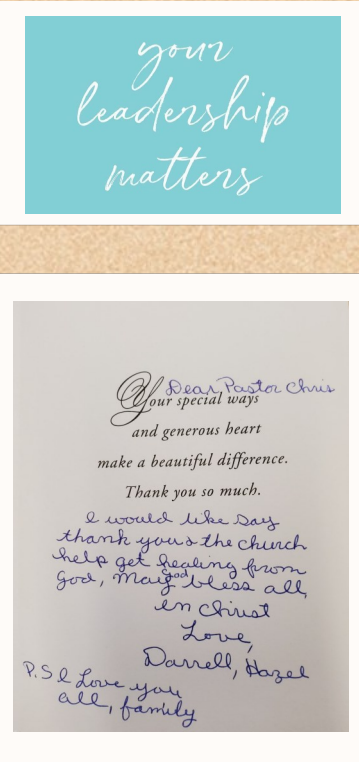 your
leadership
matters
Dear Pastor Chris
Your special ways
and generous heart
make a beautiful difference.
Thank you so much.
I would like say
thank you & the church
help get healing from
God, may god bless all,
in Christ
Love,
Darrell, Hazel
P.S I Love you
all, family